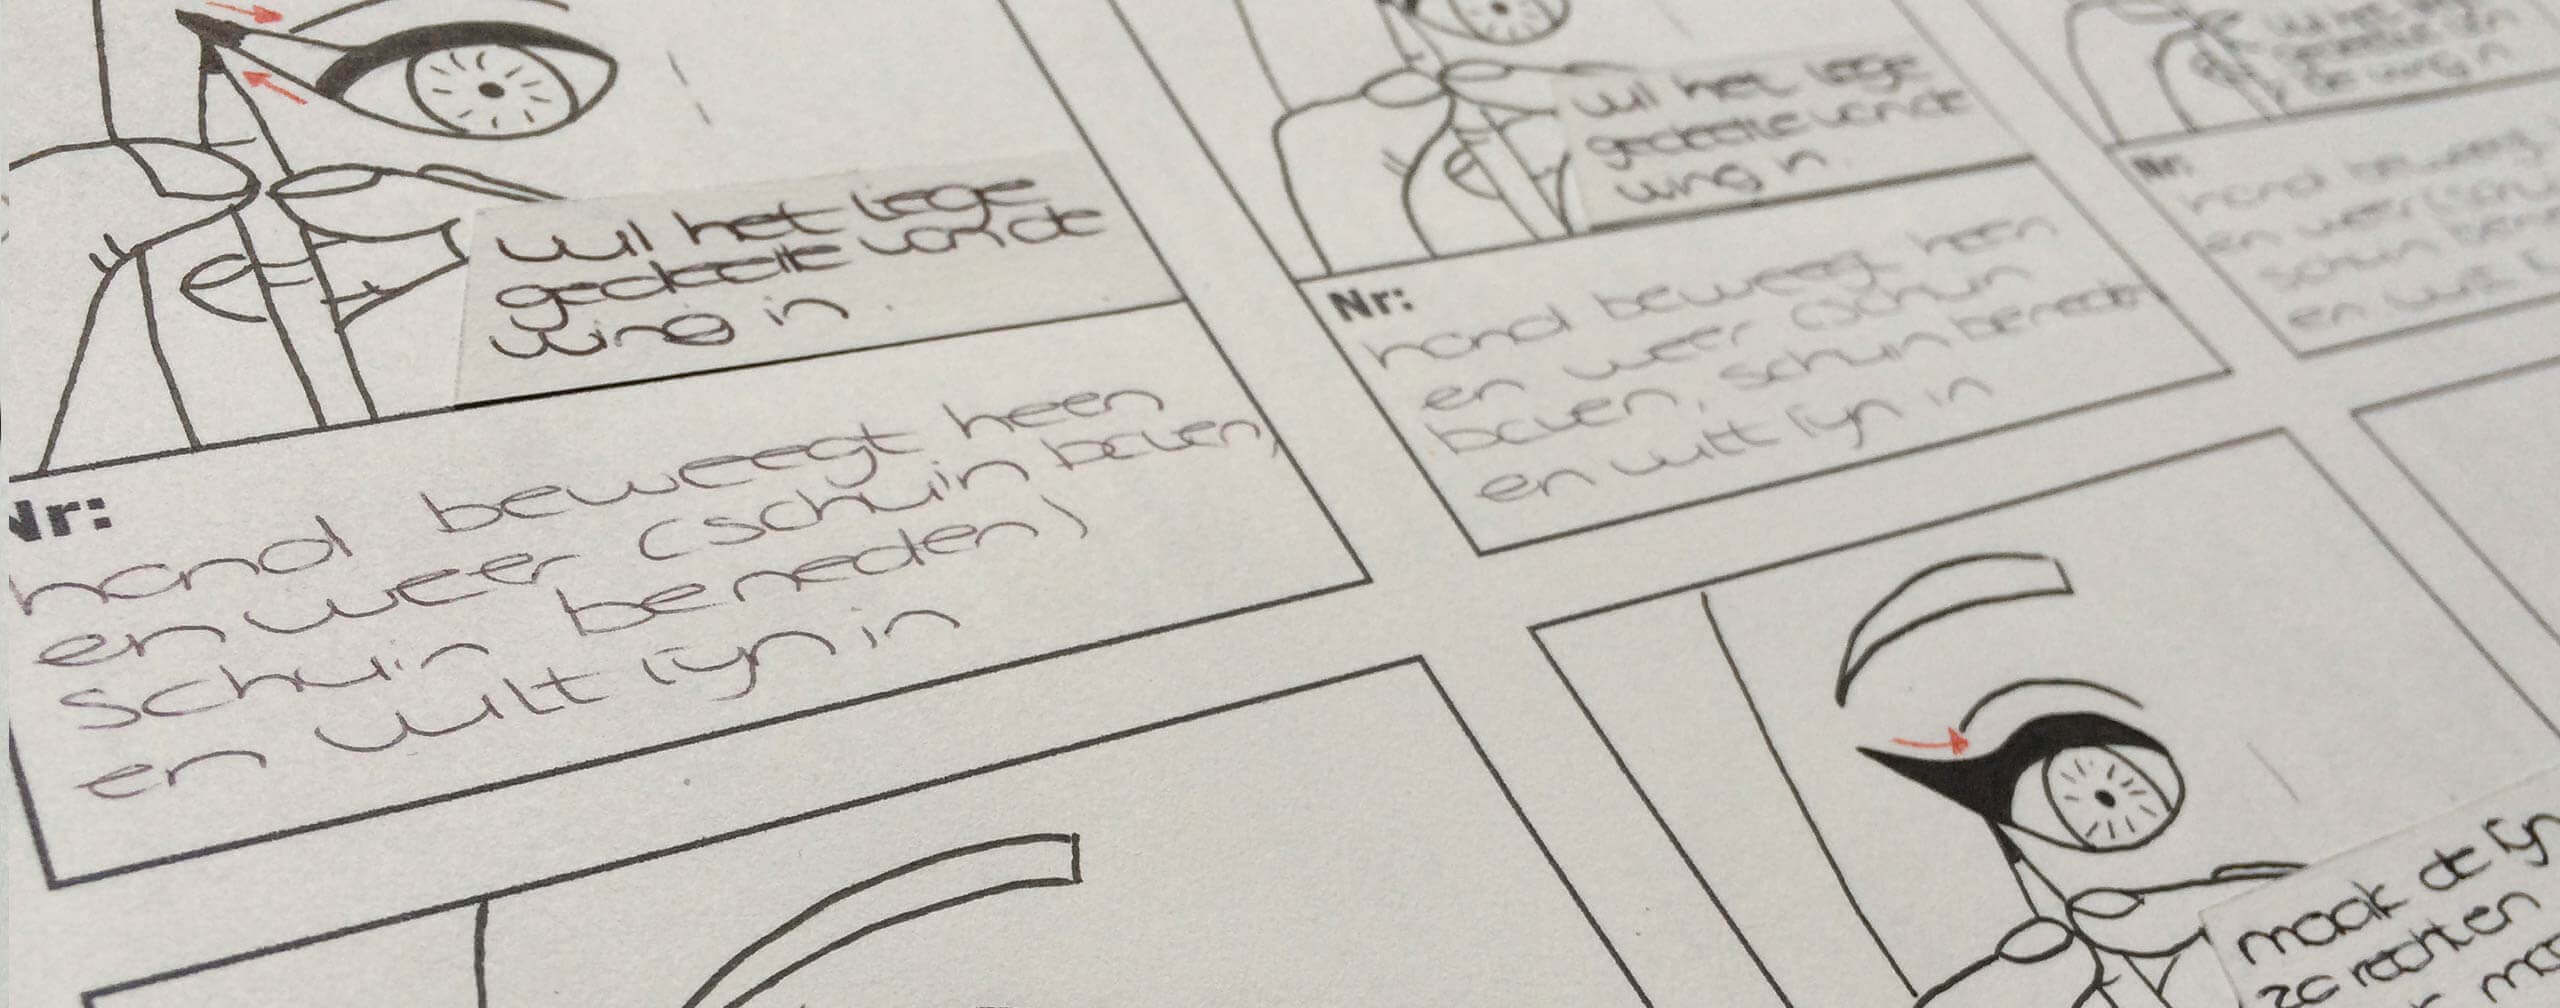 vul het lege
gedeelte van de
wing in.
Nr:
hand beweegt heen
en weer (schuin boven,
schuin beneden)
en vult lijn in
vul het lege
gedeelte van de
wing in.
Nr:
hand beweegt heen
en weer (schuin
boven, schuin beneden
en vult lijn in
de wing in
Nr:
hand beweegt
en weer (schuin
schuin
en vult
maak de lijn
zo recht en